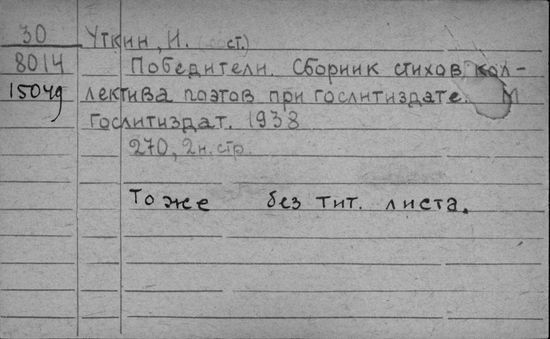 30 Уткин, И. ст.)
8014 Победители. Сборник стихов кол-
15049 лектива поэтов при гослитиздате. М
Гослитиздат. 1938
270, 2 н. стр.
То же без тит. листа.